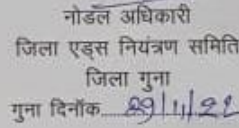 नोडल अधिकारी
जिला एड्स नियंत्रण समिति
जिला गुना
गुना दिनॉक....29/1/22